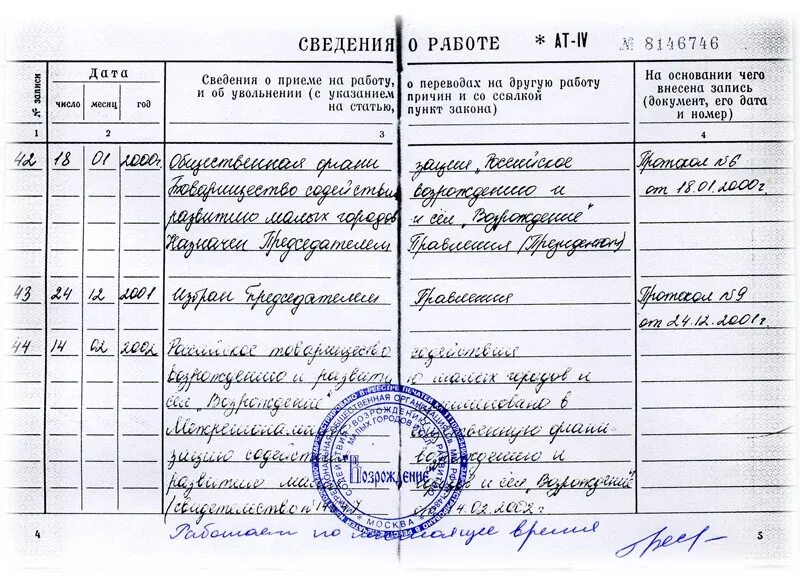 СВЕДЕНИЯ О РАБОТЕ * АТ-IV № 8146746
№ записи
Дата
число месяц год
Сведения о приеме на работу, о переводах на другую работу
и об увольнении (с указанием причин и со ссылкой
на статью, пункт закона)
На основании чего
внесена запись
(документ, его дата
и номер)
1 2 3 4
42 18 01 2000г. Общественная органи зация "Российское Протокол №6
Товарищество содействия возрождению и от 18.01.2000г.
развитию малых городов и сёл "Возрождение"
Назначен Председателем Правления (Президентом)
43 24 12 2001 Избран Председателем Правления Протокол №9
от 24.12.2001г.
44 14 02 2002 Российское товарищество содействия
возрождению и развитию малых городов и
сёл "Возрождение" в
органи-
зацию содейст возрождению и
развитию и сёл "Возрождение"
(свидетельство 14.02.2002)
Возрождение
* МОСКВА *
4 Работает по настоящее время 5